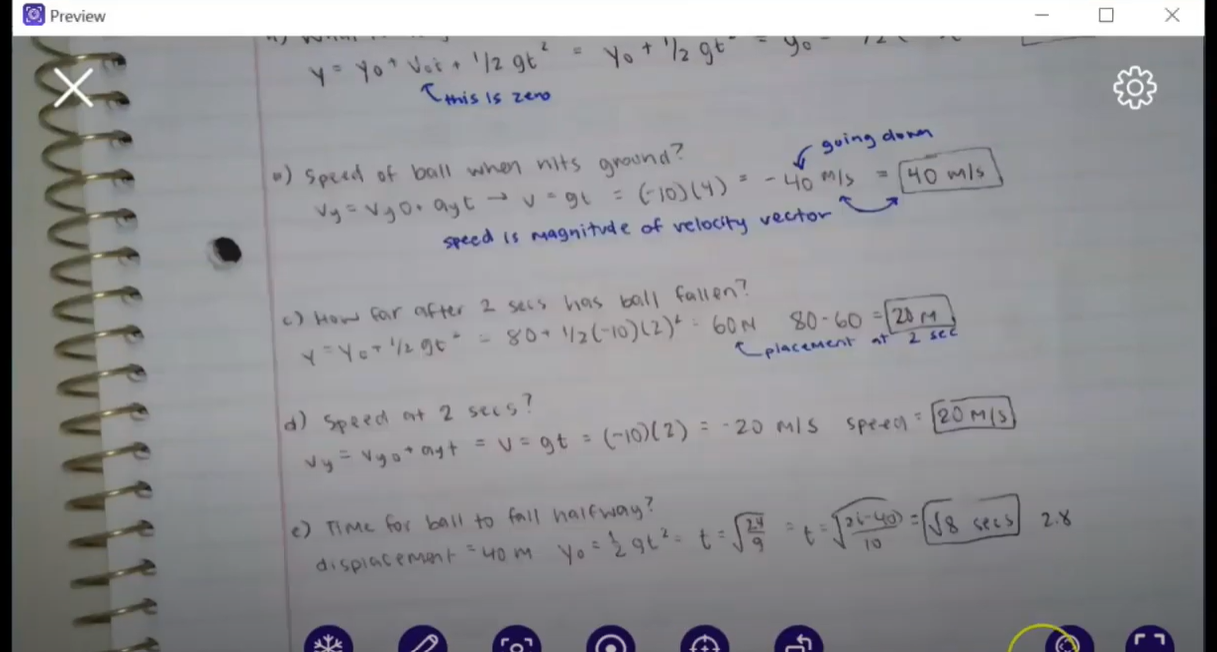 Preview
y = y₀ + v₀t + 1/2 gt² = y₀ + 1/2 gt² = y₀
this is zero
going down
speed of ball when hits ground?
vy = vy0 + ayt → v = gt = (-10)(4) = -40 m/s = 40 m/s
speed is magnitude of velocity vector
c) How far after 2 secs has ball fallen?
y = y₀ + 1/2 gt² = 80 + 1/2 (-10)(2)² = 60M 80-60 = 20 M
placement at 2 sec
d) Speed at 2 secs?
vy = vy₀ + ayt = v = gt = (-10)(2) = -20 M/S speed = 20 M/S
e) Time for ball to fall halfway?
displacement = 40 m y₀ = 1/2 gt² = t = √ = t = √ 10 = √8 secs 2.8